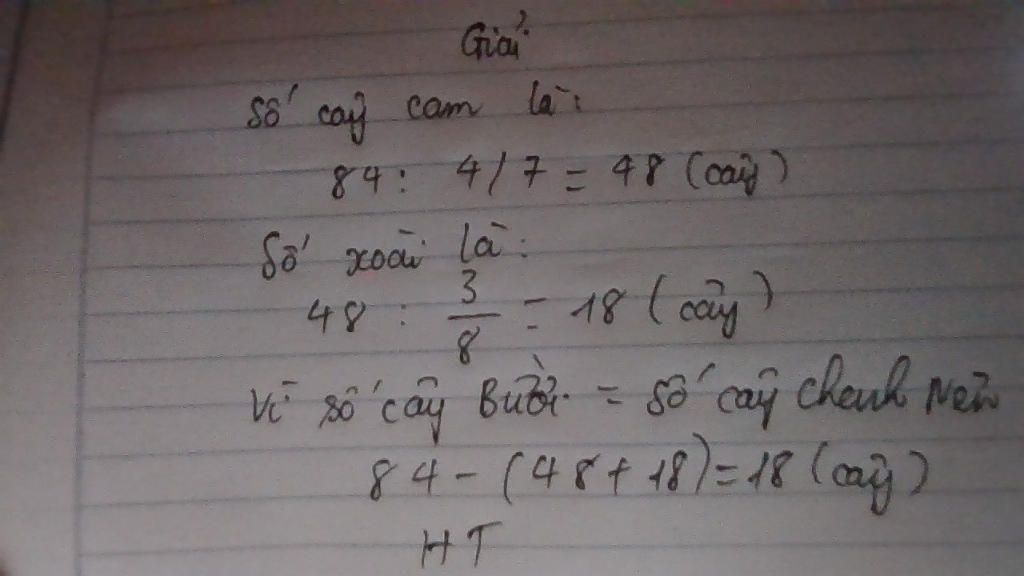 Giải
Số cây cam là:
84 : 4/7 = 48 (cây)
Số xoài là:
48 : 3/8 = 18 (cây)
Vì số cây Bưởi = số cây chanh Nên
84 - (48 + 18) = 18 (cây)
HT